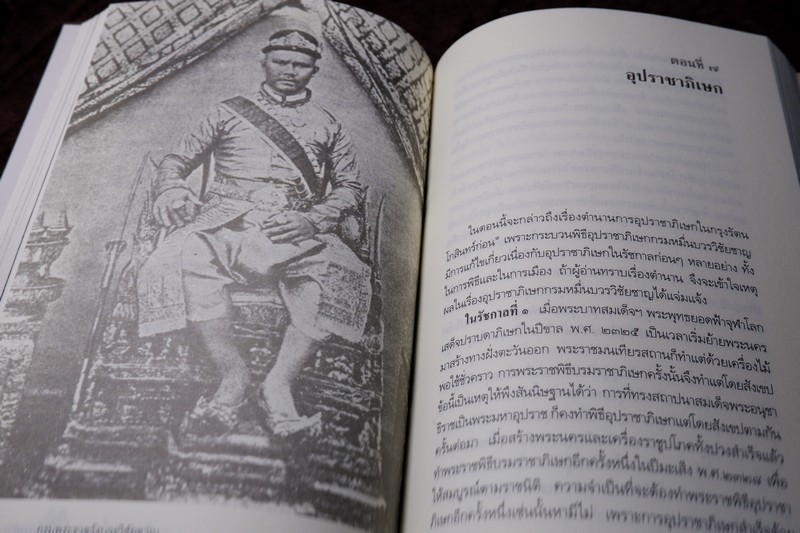 ตอนที่ ๗
อุปราชาภิเษก
ในตอนนี้จะกล่าวถึงเรื่องตำนานการอุปราชาภิเษกในกรุงรัตน
โกสินทร์ก่อน" เพราะกระบวนพิธีอุปราชาภิเษกกรมหมื่นบวรวิชัยชาญ
มีการแก้ไขเกี่ยวเนื่องกับอุปราชาภิเษกในรัชกาลก่อนๆ หลายอย่าง ทั้ง
ในการพิธีและในการเมือง ถ้าผู้อ่านทราบเรื่องตำนาน จึงจะเข้าใจเหตุ
ผลในเรื่องอุปราชาภิเษกกรมหมื่นบวรวิชัยชาญได้แจ่มแจ้ง
ในรัชกาลที่ ๑ เมื่อพระบาทสมเด็จฯ พระพุทธยอดฟ้าจุฬาโลก
เสด็จปราบดาภิเษกในปีขาล พ.ศ. ๒๓๒๕ เป็นเวลาเริ่มย้ายพระนคร
มาสร้างทางฝั่งตะวันออก พระราชมนเทียรสถานก็ทำแต่ด้วยเครื่องไม้
พอใช้ชั่วคราว การพระราชพิธีบรมราชาภิเษกครั้งนั้นจึงทำแต่โดยสังเขป
ข้อนี้เป็นเหตุให้พึงสันนิษฐานได้ว่า การที่ทรงสถาปนาสมเด็จพระอนุชา
ธิราชเป็นพระมหาอุปราช ก็คงทำพิธีอุปราชาภิเษกแต่โดยสังเขปตามกัน
ครั้นต่อมา เมื่อสร้างพระนครและเครื่องราชูปโภคทั้งปวงสำเร็จแล้ว
ทำพระราชพิธีบรมราชาภิเษกอีกครั้งหนึ่งในปีมะเส็ง พ.ศ.๒๓๒๘ เพื่อ
ให้สมบูรณ์ตามราชนิติ ความจำเป็นที่จะต้องทำพระราชพิธีอุปราชา
ภิเษกอีกครั้งหนึ่งเช่นนั้นหามีไม่ เพราะการอุปราชาภิเษกสำเร็จด้วย